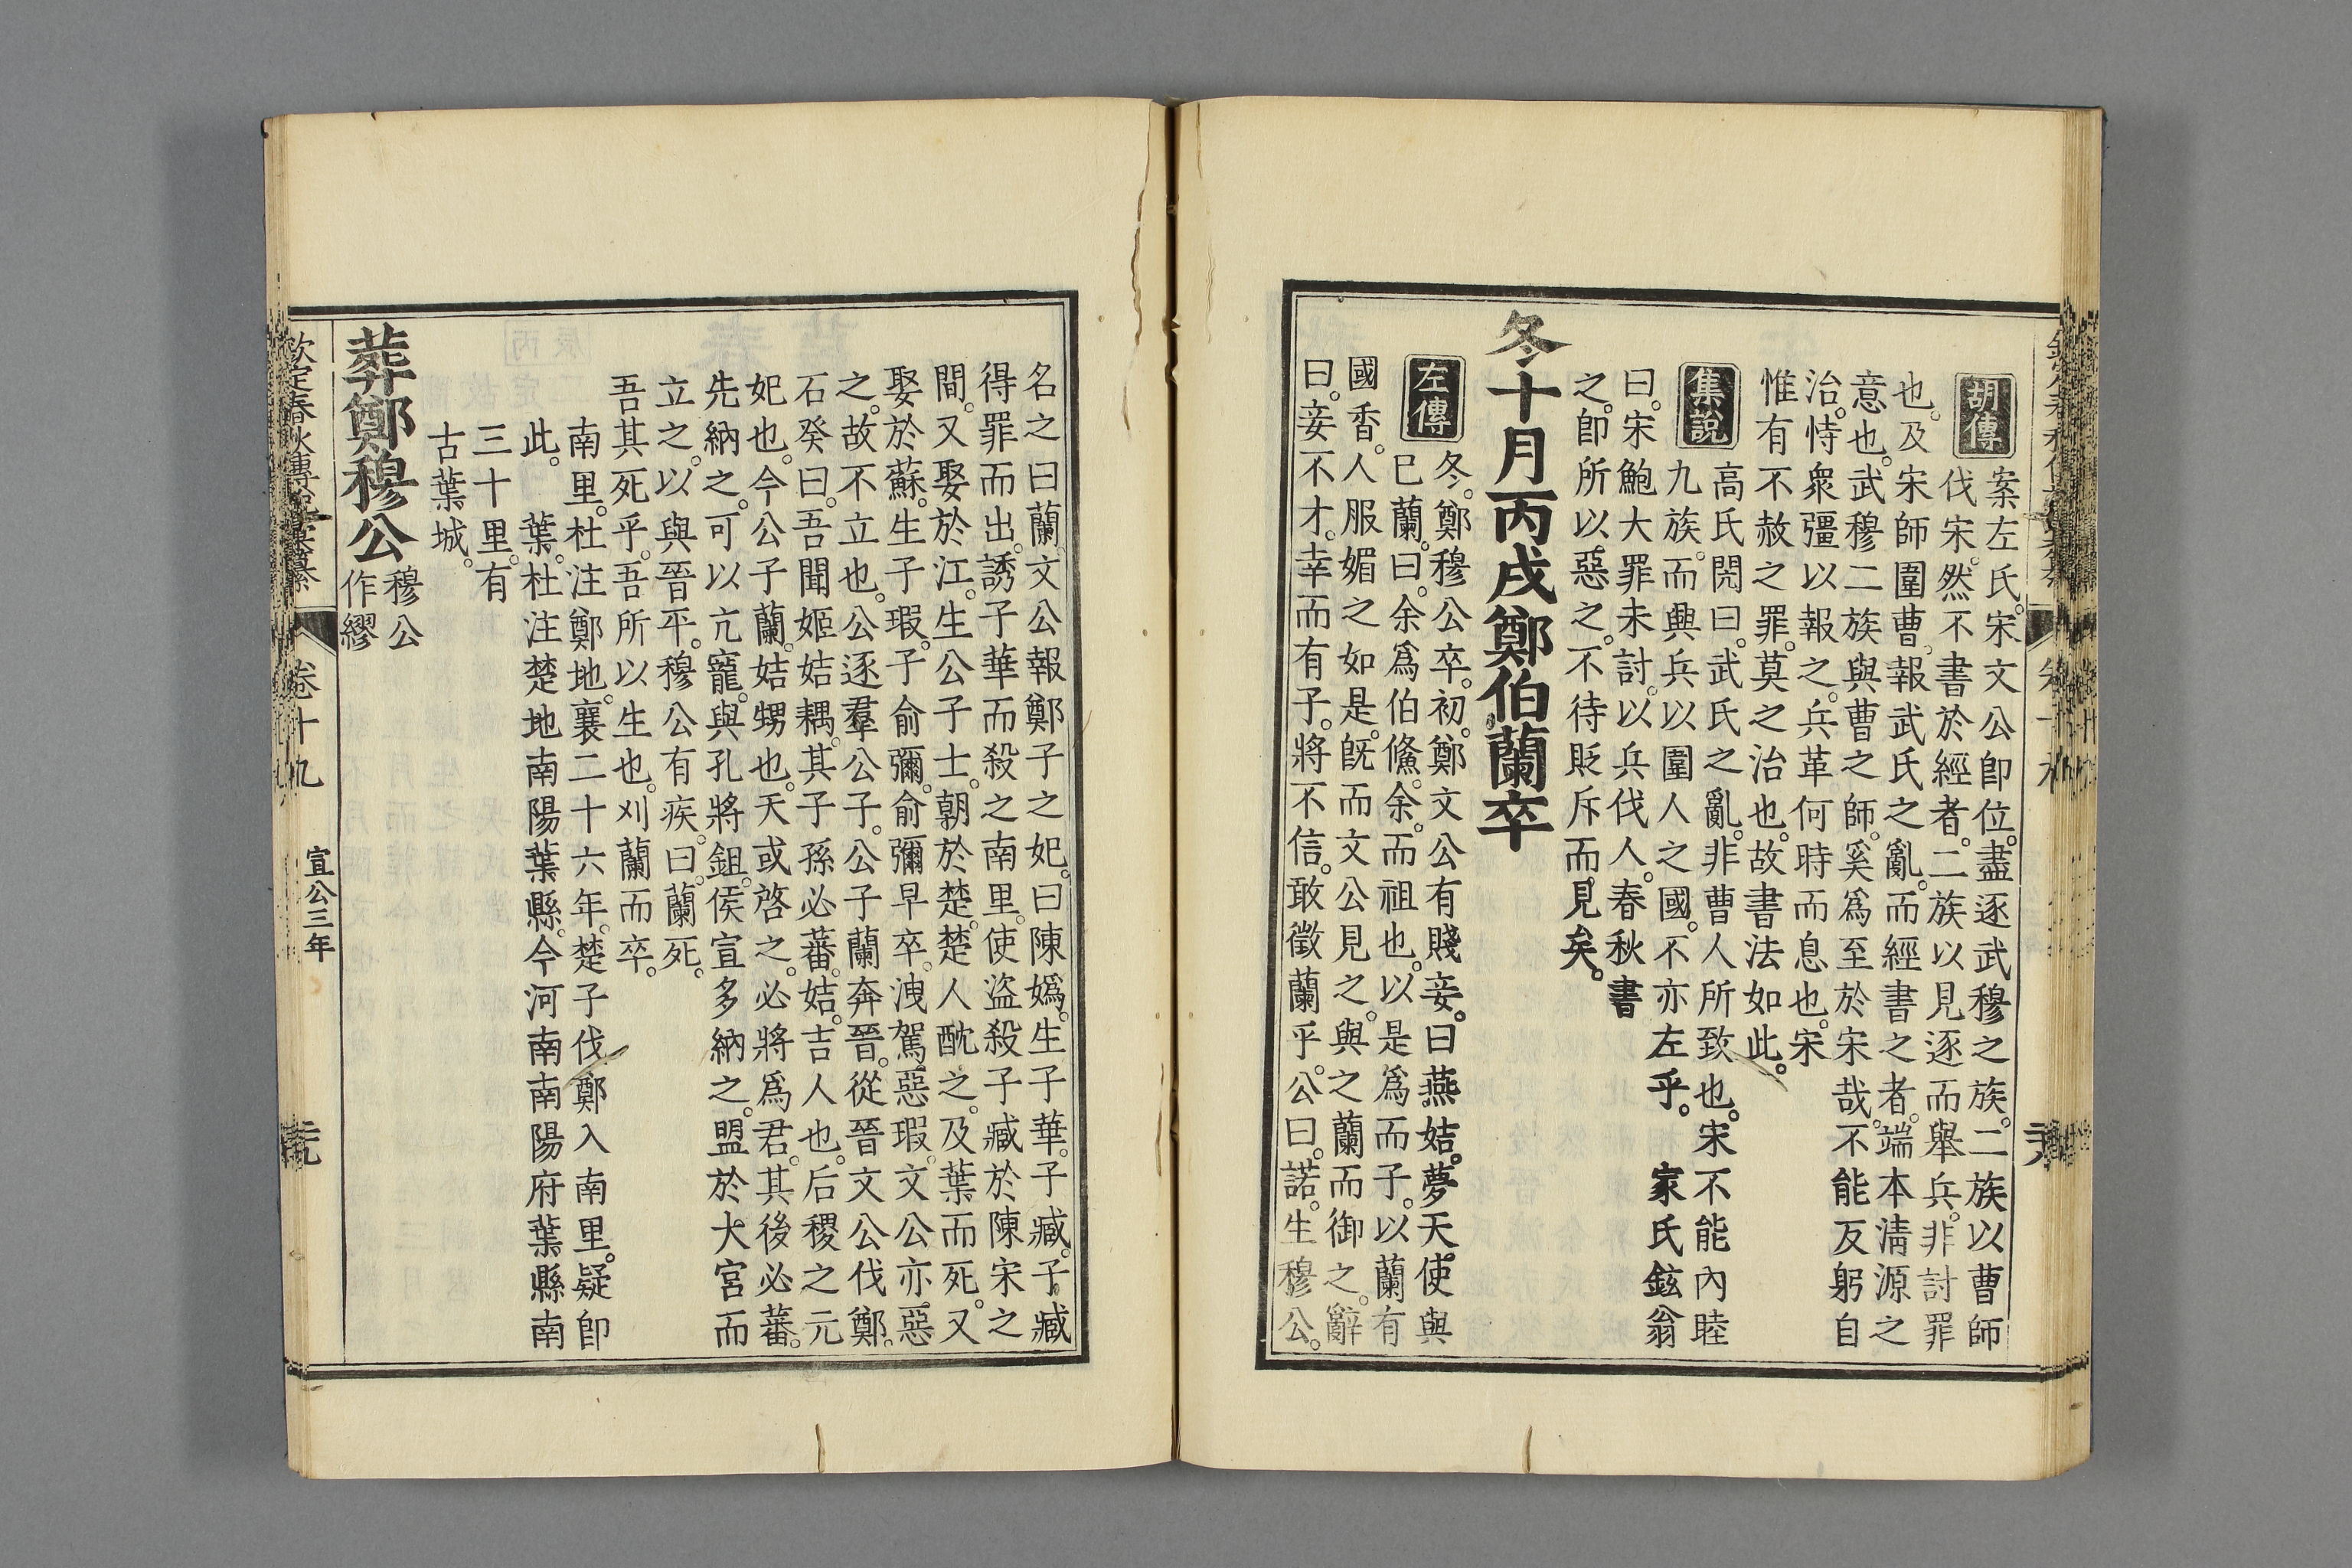 胡傳
案左氏宋文公卽位。盡逐武穆之族。二族以曹師
伐宋。然不書於經者。二族以見逐而舉兵。非討罪
也。及宋師圍曹。報武氏之亂。而經書之者。端本淸源之
意也。武穆二族與曹之師。奚爲至於宋哉。不能反躬自
治。恃衆彊以報之。兵革何時而息也。宋
惟有不赦之罪。莫之治也。故書法如此。
集說
高氏閌曰。武氏之亂。非曹人所致也。宋不能內睦
九族。而興兵以圍人之國。不亦左乎。家氏鉉翁
曰。宋鮑大罪未討。以兵伐人。春秋書
之。卽所以惡之。不待貶斥而見矣。
冬十月丙戌鄭伯蘭卒
左傳
冬。鄭穆公卒。初。鄭文公有賤妾。曰燕姞。夢天使與
已蘭。曰。余爲伯鯈。余。而祖也。以是爲而子。以蘭有
國香。人服媚之如是。旣而文公見之。與之蘭而御之。辭
曰。妾不才。幸而有子。將不信。敢徵蘭乎。公曰。諾。生穆公。
名之曰蘭。文公報鄭子之妃。曰陳嬀。生子華。子臧。子臧
得罪而出。誘子華而殺之南里。使盜殺子臧於陳宋之
間。又娶於江。生公子士。朝於楚。楚人酖之。及葉而死。又
娶於蘇。生子瑕。子俞彌。俞彌早卒。洩駕惡瑕。文公亦惡
之。故不立也。公逐羣公子。公子蘭奔晉。從晉文公伐鄭。
石癸曰。吾聞姬姞耦。其子孫必蕃。姞。吉人也。后稷之元
妃也。今公子蘭。姞甥也。天或啓之。必將爲君。其後必蕃。
先納之。可以亢寵。與孔將鉏。侯宣多納之。盟於大宮而
立之。以與晉平。穆公有疾。曰。蘭死。
吾其死乎。吾所以生也。刈蘭而卒。
南里。杜注鄭地。襄二十六年。楚子伐鄭入南里。疑卽
此。葉。杜注楚地南陽葉縣。今河南南陽府葉縣南
三十里。有
古葉城。
葬鄭穆公
穆公
作繆
欽定春秋傳說彙纂
卷十九
宣公三年